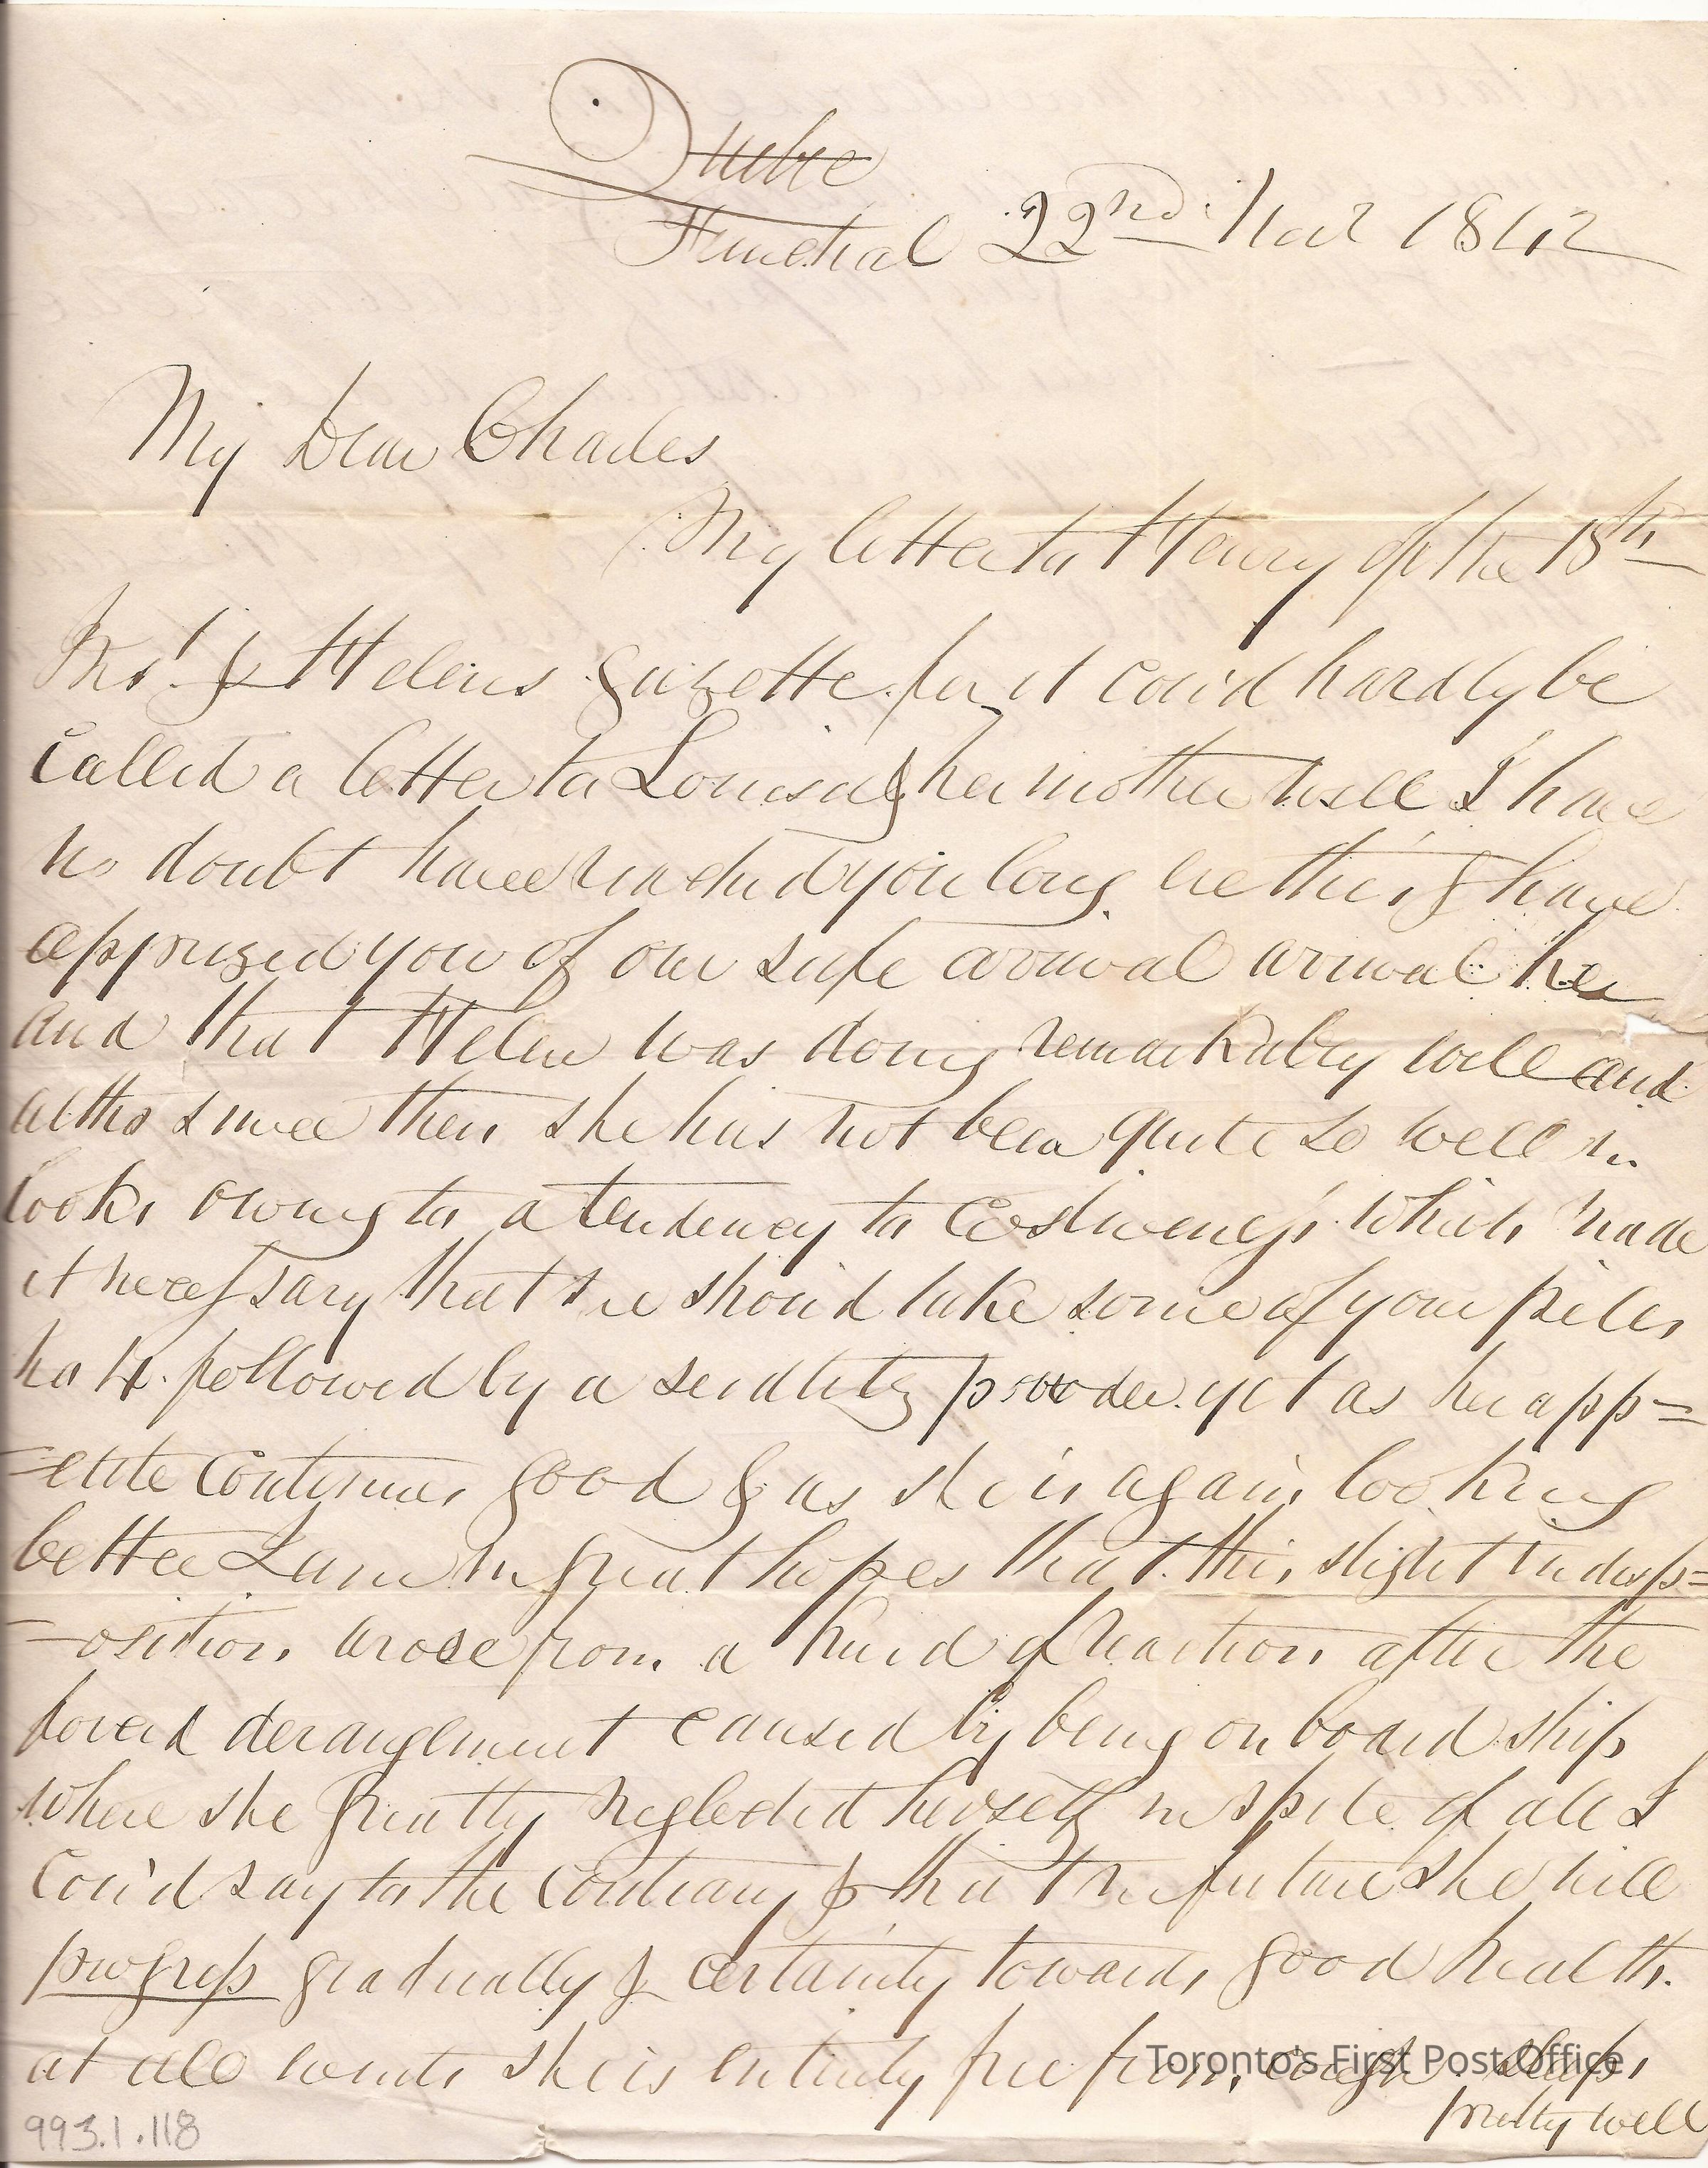 Duke
Funchal 22nd Nov 1842
My Dear Charles
My letter to Henry of the 18th
Inst. & Helens gazette for it cou'd hardly be
called a letter to Louisa & her mother will I have
no doubt have reached you long ere this & have
apprized you of our safe arrival arrival her
and that Helen was doing remarkably well and
altho since then she has not been quite so well in
looks owing to a tendency to Costiveness which made
it necessary that she shou'd take some of your pills
No 4. followed by a seidlitz powder. yet as her app=
=etite continues good & as she is again looking
better I am in great hopes that this slight indisp=
=osition arose from a kind of reaction after the
bowel derangement caused by being on board ship
where she greatly neglected herself in spite of all I
cou'd say to the contrary & that in future she will
progress gradually & certainly towards good health.
at all events she is entirely free from cough. sleeps
pretty well
993.1.118
Toronto's First Post Office